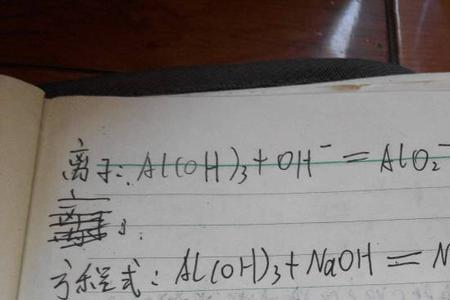 离子:Al(OH)₃+OH⁻=AlO₂⁻
方程式:Al(OH)₃+NaOH=N